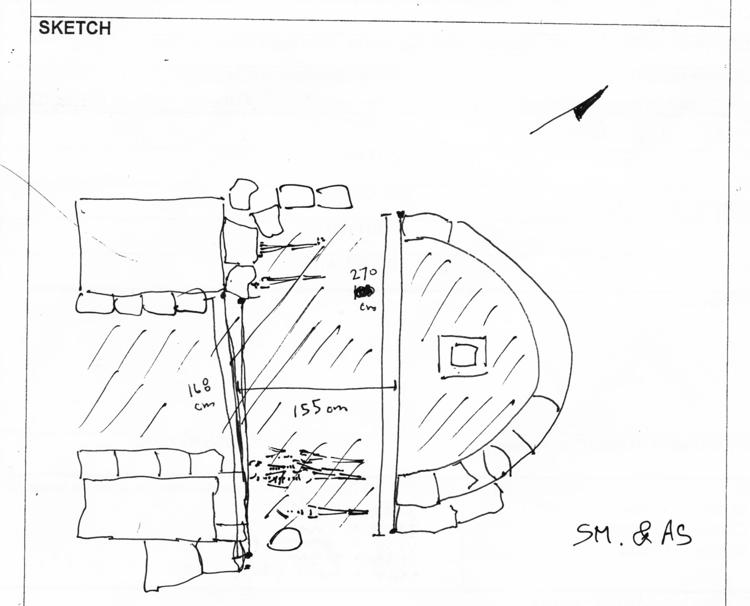 SKETCH
270
cm
160
cm
155 cm
SM. & AS